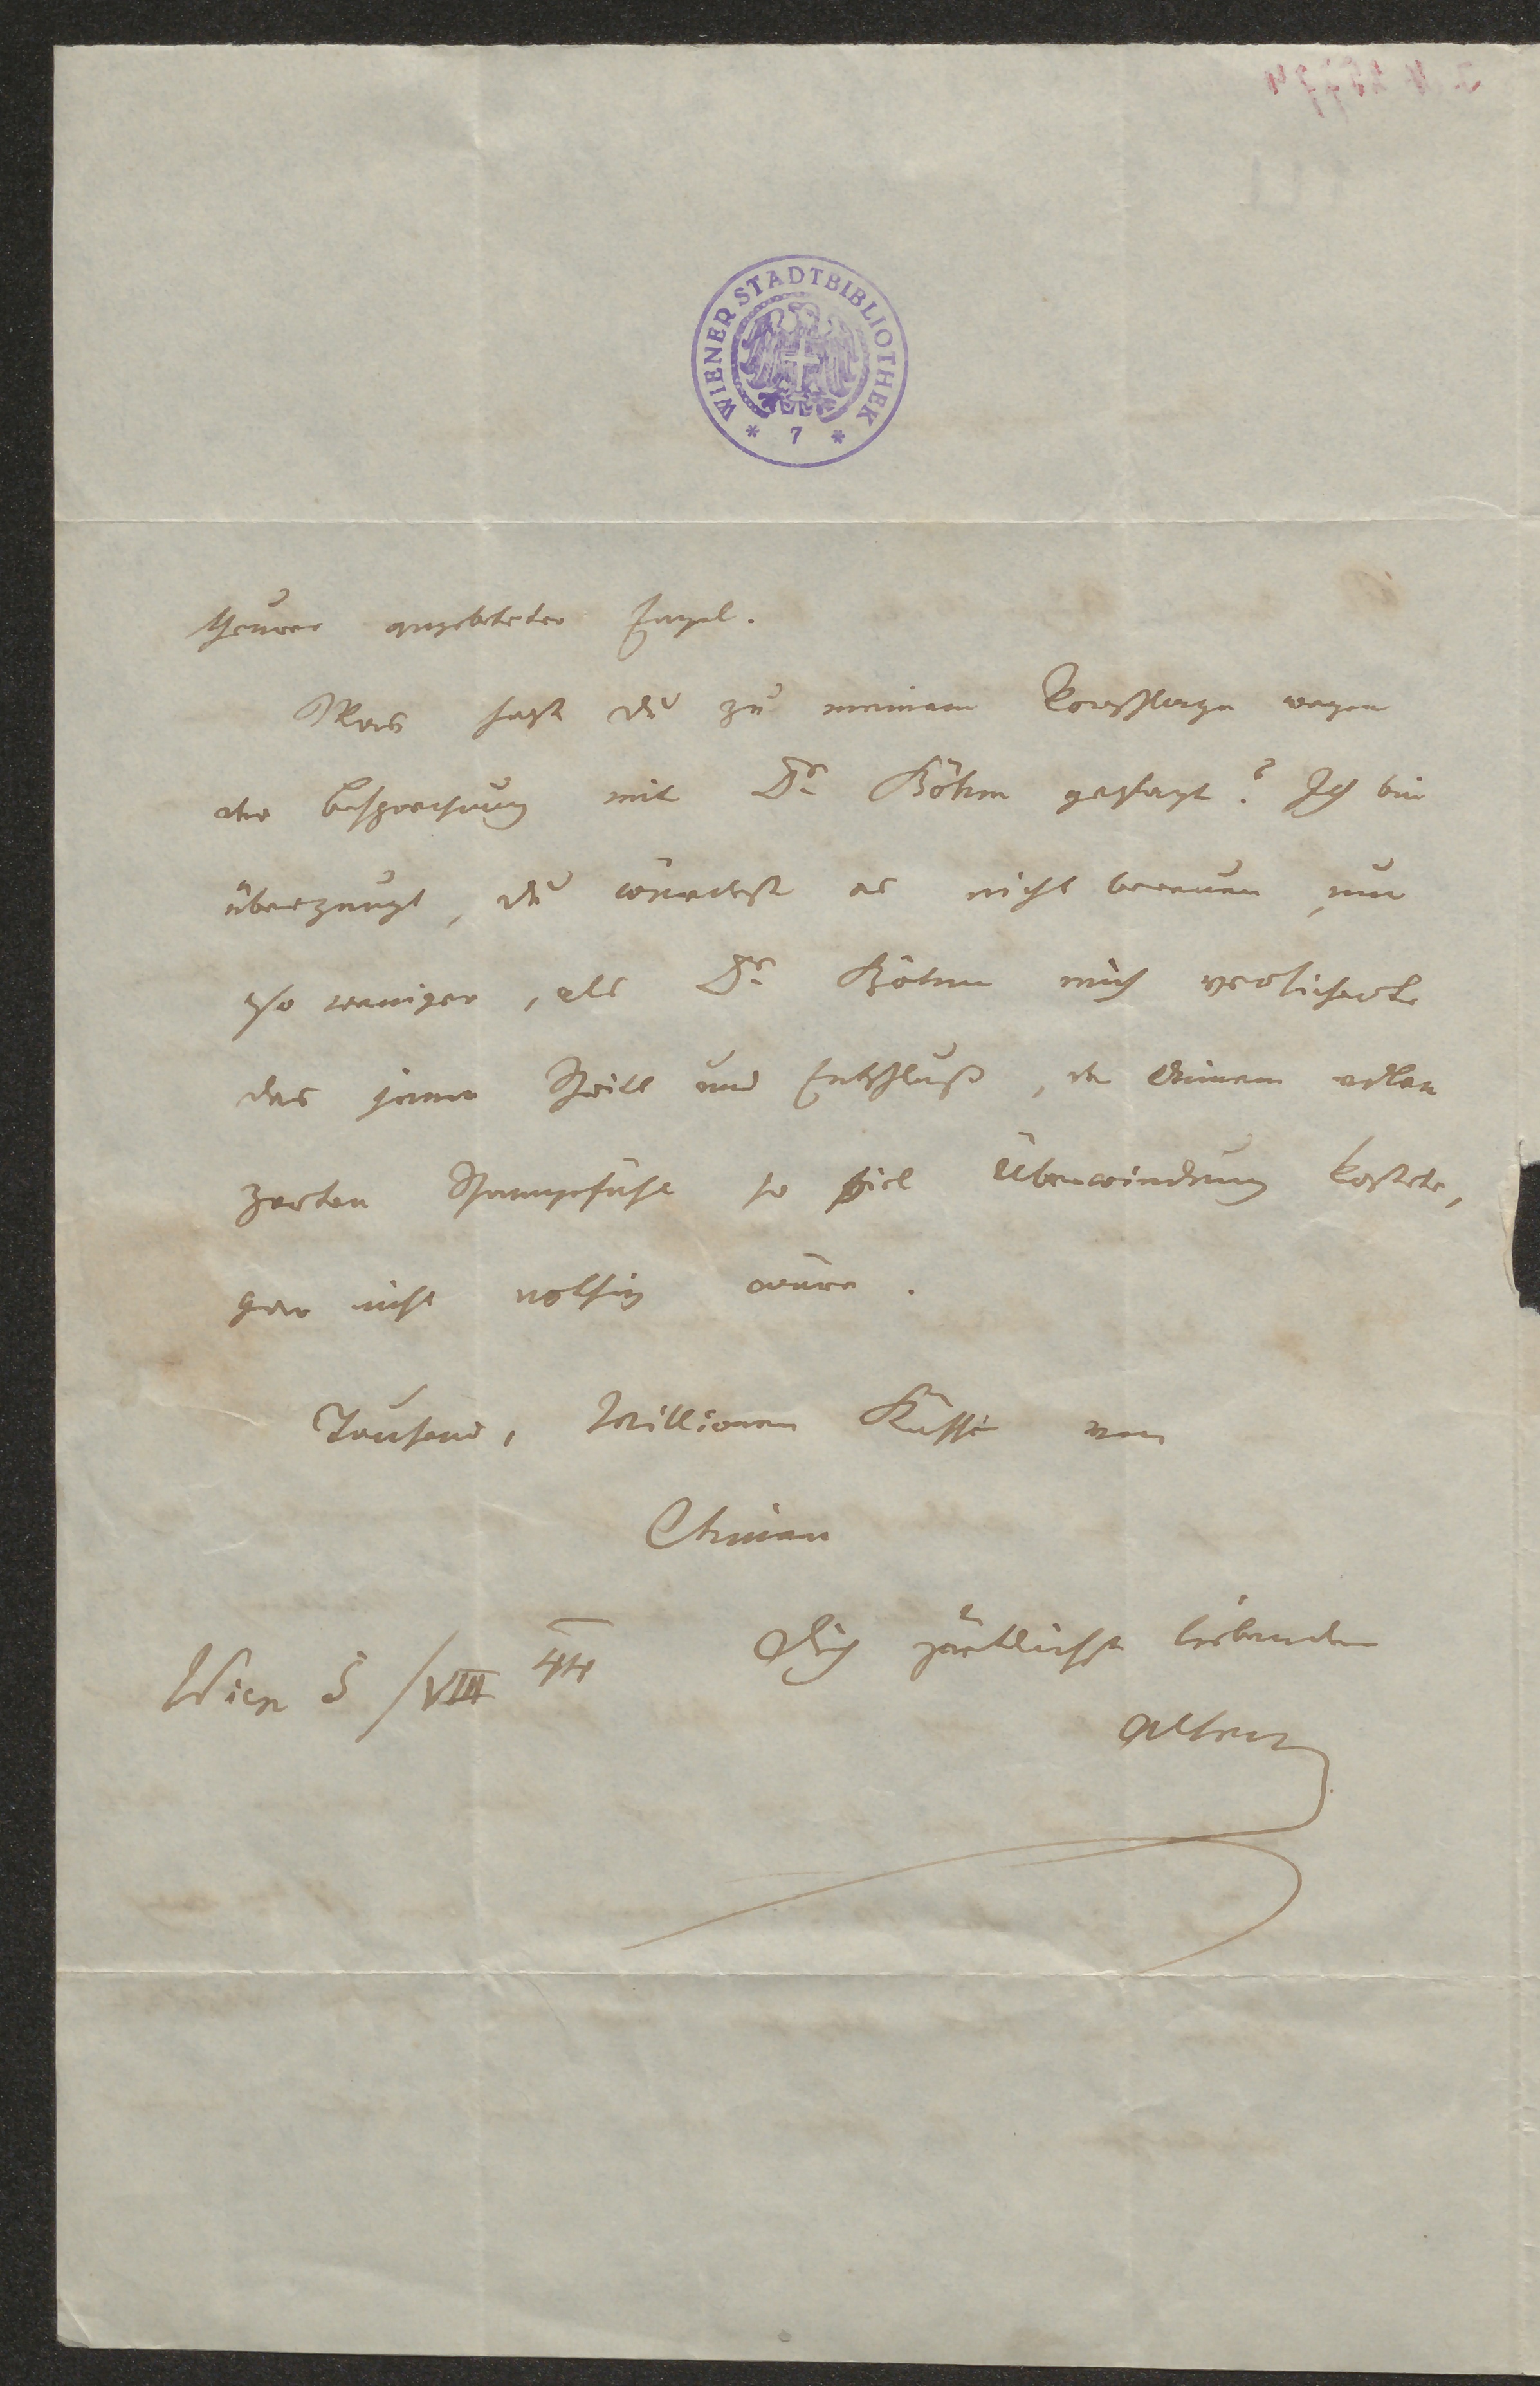 WIENER STADTBIBLIOTHEK
* 7 *
theurer angebeteter Engel.
Was hast du zu meinem Vorschlage wegen
der Besprechung mit Dr Böhm gesagt? Ich bin
überzeugt, du würdest es nicht bereuen, um
so weniger, als Dr Böhm mich versicherte
das jener Schritt und Entschluß, der deinem edlen
zarten Schamgefühl so viel Überwindung kostete,
gar nicht nöthig wäre.
Tausend, Millionen Küsse von
Deinem
Dich zärtlichst liebenden
Wien 5/VIII 44
Alten